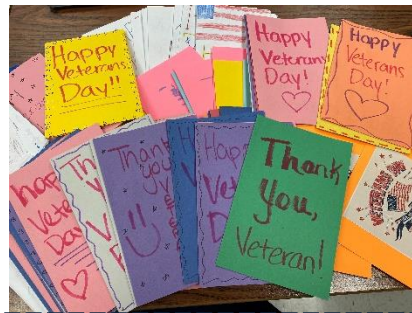 Happy
Veterans
Day!!
Happy
Veterans
Day!
Happy
Veterans
Day!
Happy
Day
Thank
you
Thank
you,
Veteran!